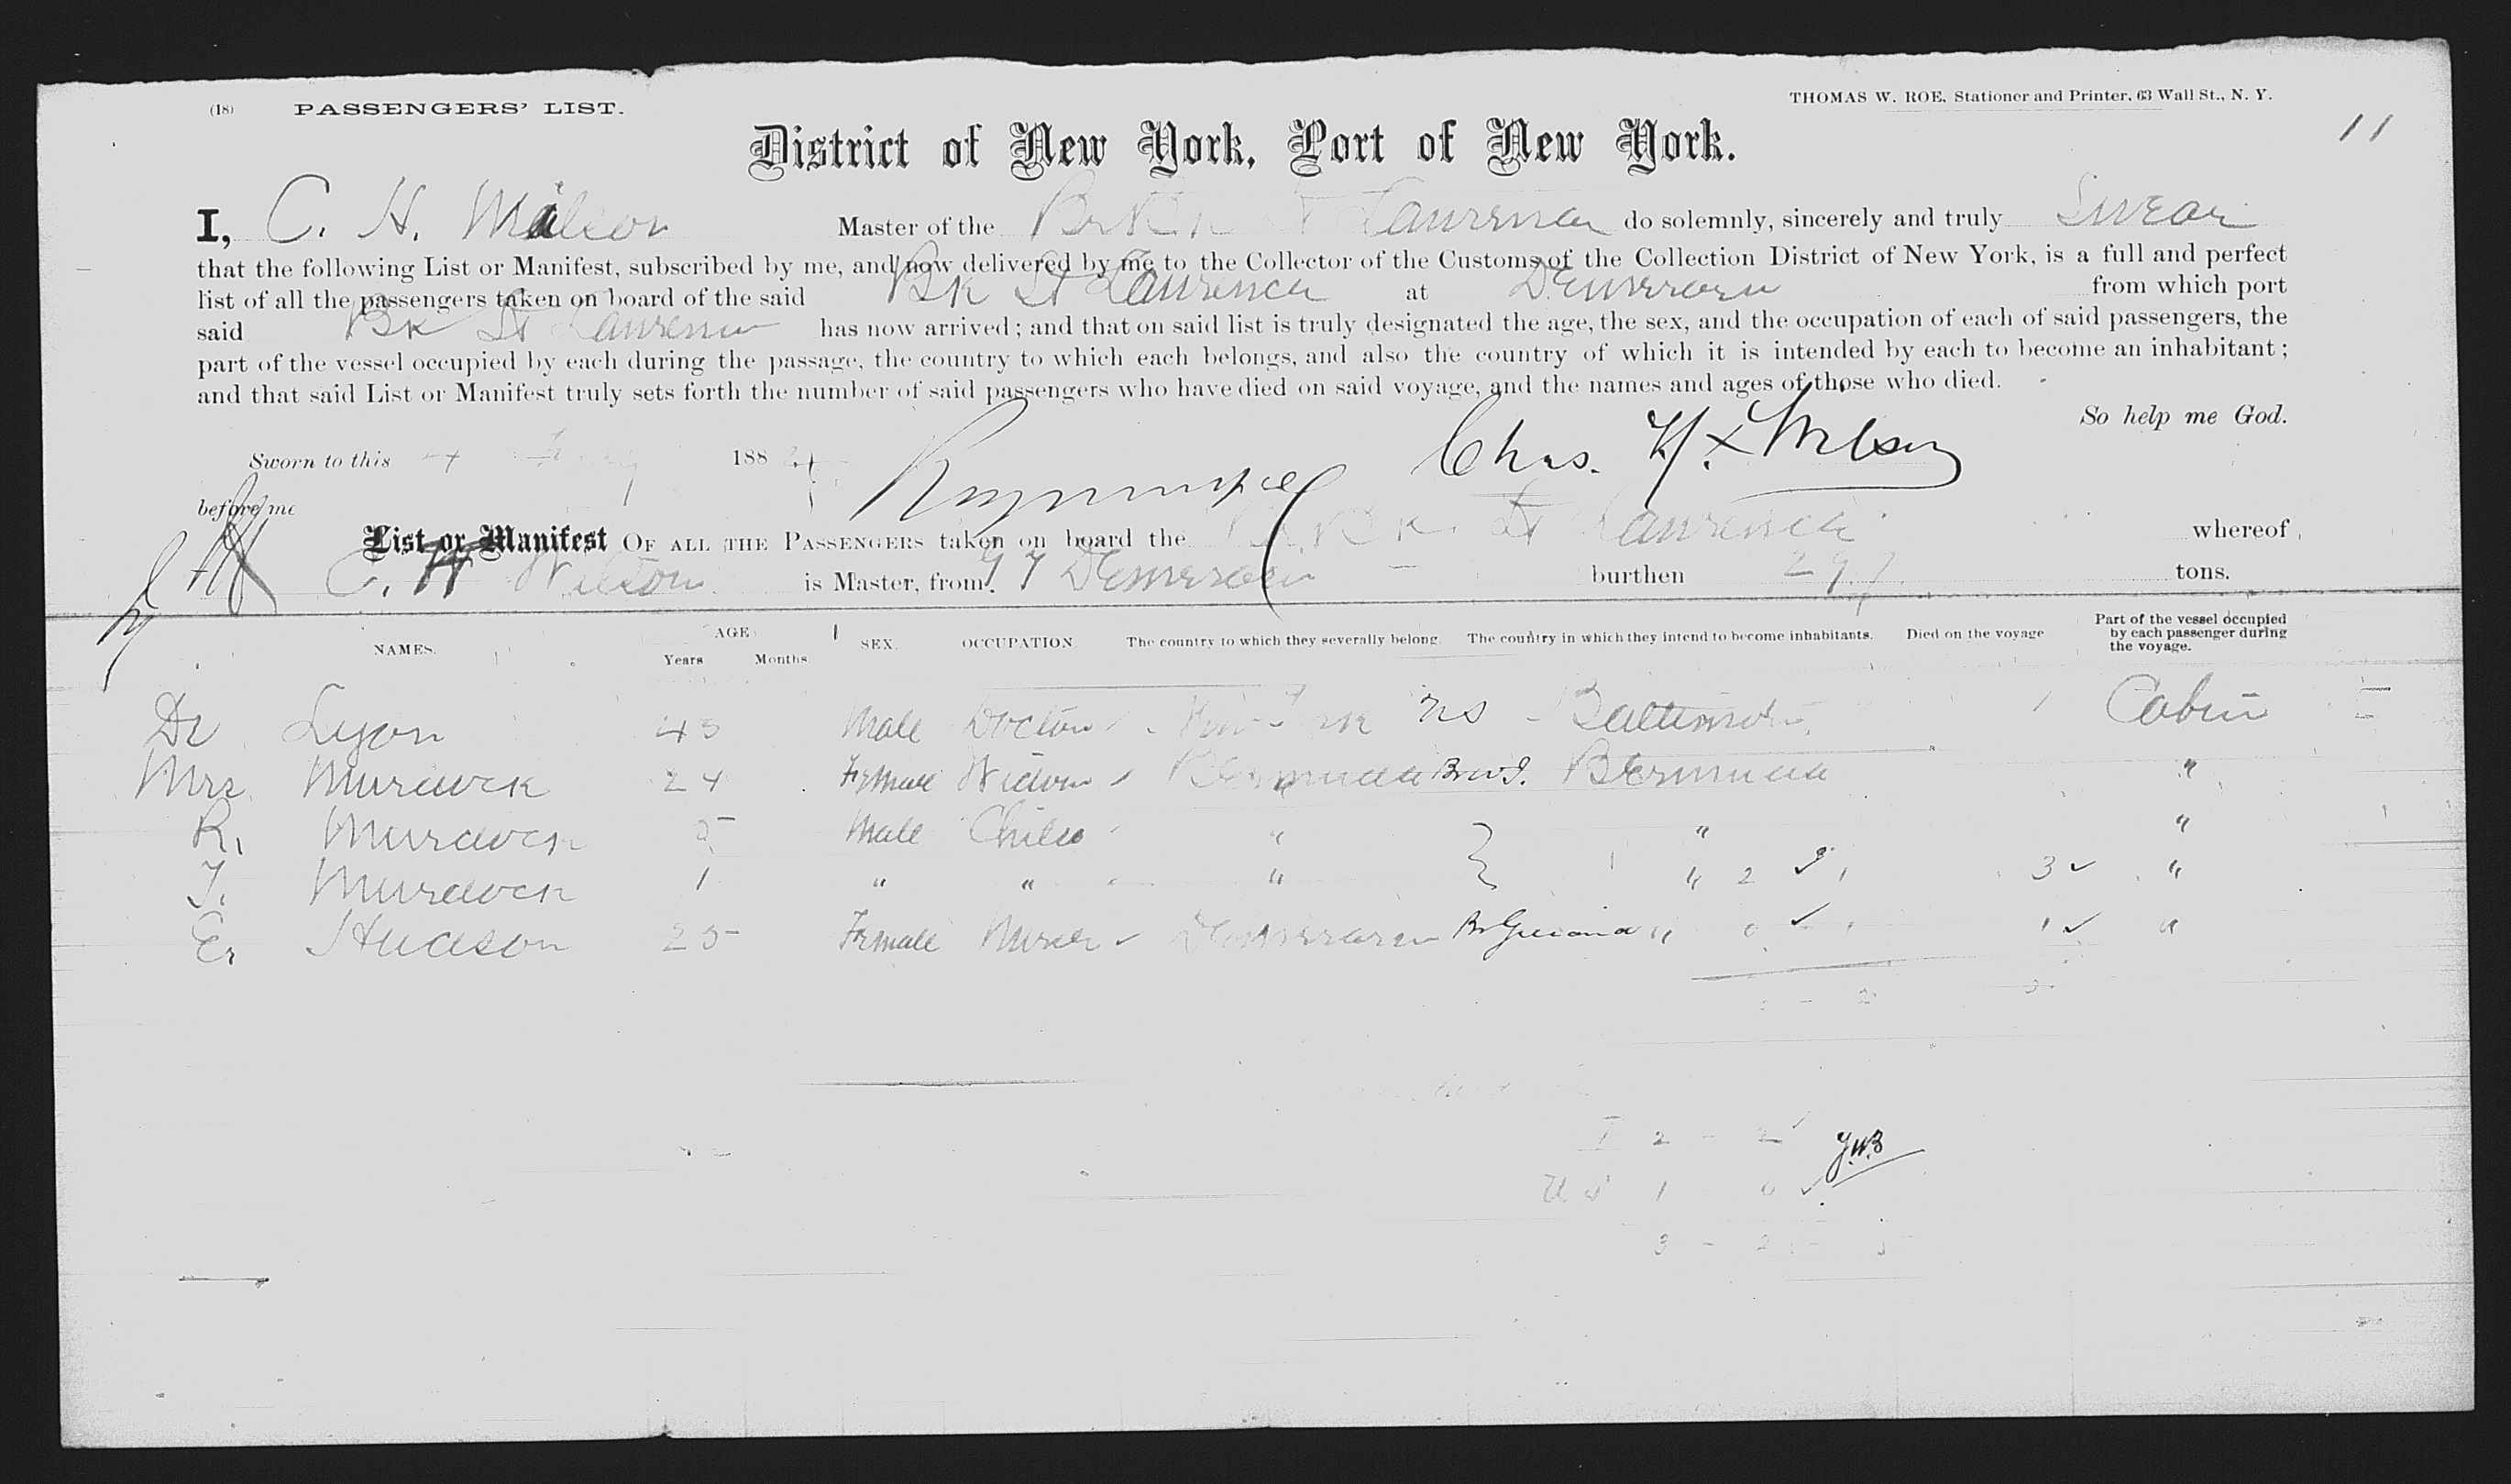 (18) PASSENGERS' LIST.
THOMAS W. ROE, Stationer and Printer, 63 Wall St., N. Y.
11
District of New York, Port of New York.
I, C. H. Wilson Master of the Br Bk St Lawrence do solemnly, sincerely and truly Swear
that the following List or Manifest, subscribed by me, and now delivered by me to the Collector of the Customs of the Collection District of New York, is a full and perfect
list of all the passengers taken on board of the said Bk St Lawrence at Demerara from which port
said Bk St Lawrence has now arrived; and that on said list is truly designated the age, the sex, and the occupation of each of said passengers, the
part of the vessel occupied by each during the passage, the country to which each belongs, and also the country of which it is intended by each to become an inhabitant;
and that said List or Manifest truly sets forth the number of said passengers who have died on said voyage, and the names and ages of those who died.
So help me God.
Sworn to this 188
Chas. H. Wilson
before me
List or Manifest OF ALL THE PASSENGERS taken on board the Bk. St Lawrence whereof
C. H Wilson is Master, from Demerara burthen 297 tons.
NAMES. AGE Years Months SEX. OCCUPATION The country to which they severally belong. The country in which they intend to become inhabitants. Died on the voyage Part of the vessel occupied by each passenger during the voyage.
Dr Lyon 45 Male Doctor New York US Baltimore Cabin
Mrs Murdock 24 Female Widow Bermuda Br W I. Bermuda "
R. Murdock 5 Male Child " " "
T. Murdock 1 " " " " 2 3 ✓ "
E. Hudson 25 Female Nurse Demerara Br Guiana " 0 ✓ 1 ✓ "
2 2
J.W.B
U S 1 0 ✓
3 - 2 -